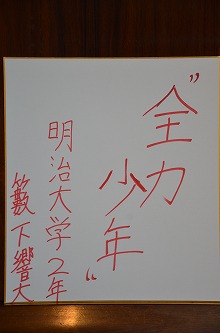 ”全力
少年“
明治大学2年
籔下響大